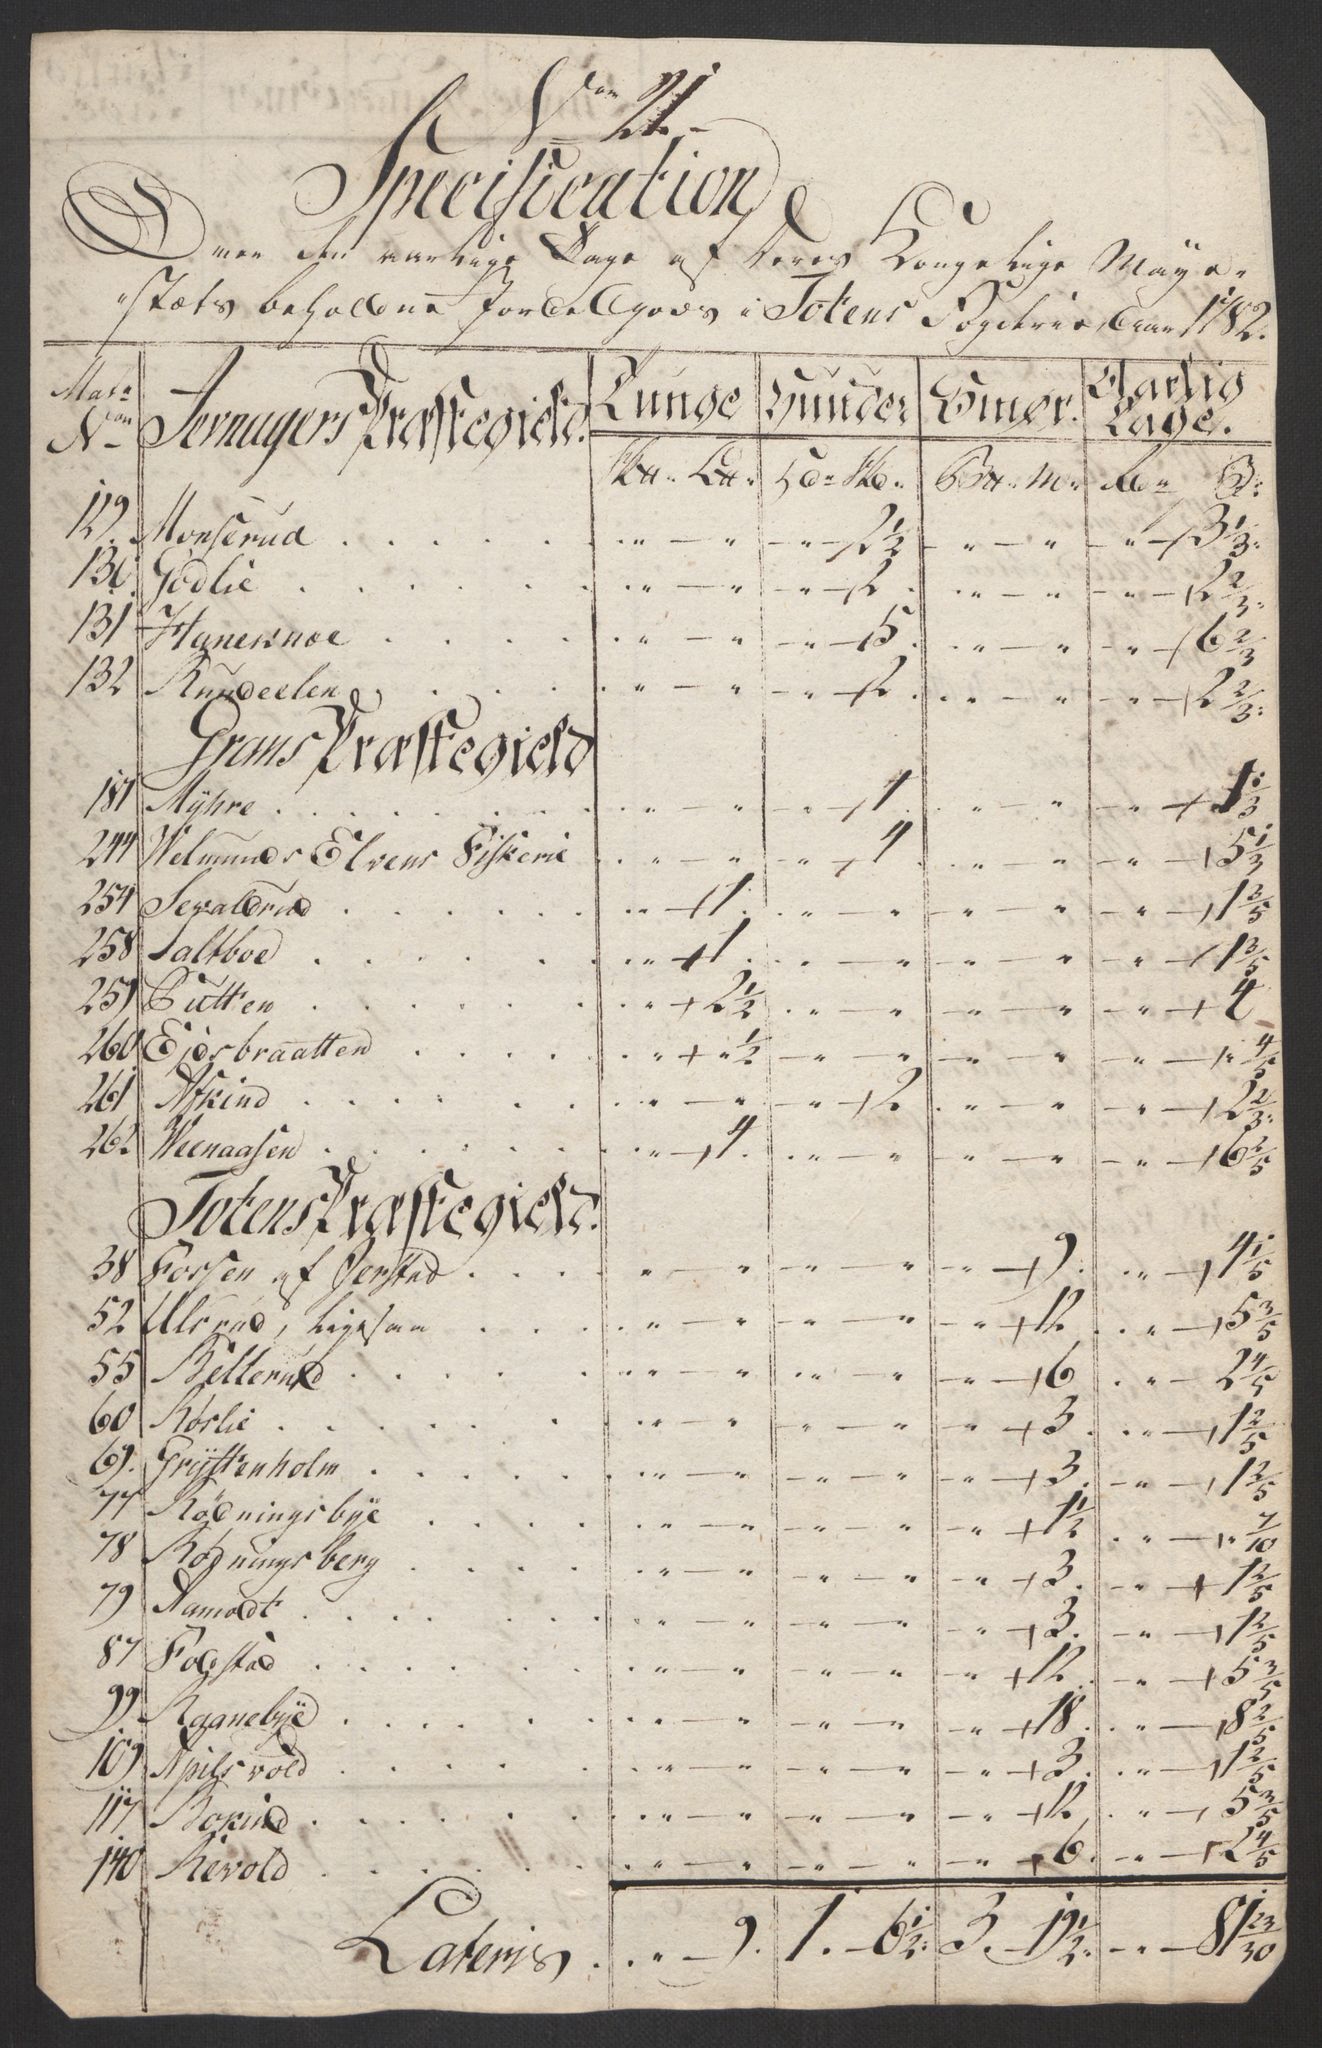 No 21
Specification
Over den aarlige Tage af Deres Kongelige Maye-
stæts beholdne Jordellgods i Totens Fogderie, Aar 1782.
Matr No | Jernagers Præstegield. | Tunge | Huuder | Smør. | Aarlig Tage.
129. Monserud . . . . " — " | " — 2 1/2 | " — " | " — 3 1/3
130. Godlie . . . . " — " | " — 2 . | " — " | " — 2 2/3
131 Haneknoe . . . . " — " | " — 5 . | " — " | " — 6 2/3
132 Rundeelen . . . . " — " | " — 2 . | " — " | " — 2 2/3
Grans Præstegield
181 Myhre . . . . " — " | " — 1 . | " — " | " — 1 1/3
244 Welmunds Elvens Fiskerie . " — " | " — 4 | " — " | " — 5 1/3
254 Sevaldrud . . . . " — 1 . | " — " | " — " | " — 1 3/5
258 Saltboe . . . . " — 1 . | " — " | " — " | " — 1 3/5
259 Putten . . . . " — 2 1/2 | " — " | " — " | " — 4
260 Ejdsbraatten . . . . " — " 1/2 | " — " | " — " | " — " 4/5
261 Askind . . . . " — " | " — 2 | " — " | " — 2 2/3
262 Weenaasen . . . . " — 4 . | " — " | " — " | " — 6 2/5
Totens Præstegield.
38 Fossen af Gerstad . . . . " — " | " — " | " — 9 . | " — 4 1/5
52 Ulsrud, ligesaa . . . . " — " | " — " | " — 12 . | " — 5 3/5
55 Bellerud . . . . " — " | " — " | " — 6 | " — 2 4/5
60 Røslie . . . . " — " | " — " | " — 3 . | " — 1 2/5
69. Gryttenholm . . . . " — " | " — " | " — 3 . | " — 1 2/5
77 Rødningsbye . . . . " — " | " — " | " — 1 1/2 | " — " 7/10
78 Rødningsberg . . . . " — " | " — " | " — 3 . | " — 1 2/5
79 Aamodt . . . . " — " | " — " | " — 3 . | " — 1 2/5
87 Fogstad . . . . " — " | " — " | " — 12 . | " — 5 3/5
99 Raanebye . . . . " — " | " — " | " — 18 . | " — 8 2/5
109 Apilsvold . . . . " — " | " — " | " — 3 . | " — 1 2/5
117 Bokind . . . . " — " | " — " | " — 12 . | " — 5 3/5
140 Revold . . . . " — " | " — " | " — 6 . | " — 2 4/5
Lateris . " — 9 . | 1 . — 6 1/2 | 3 . — 19 1/2 | " — 81 23/30